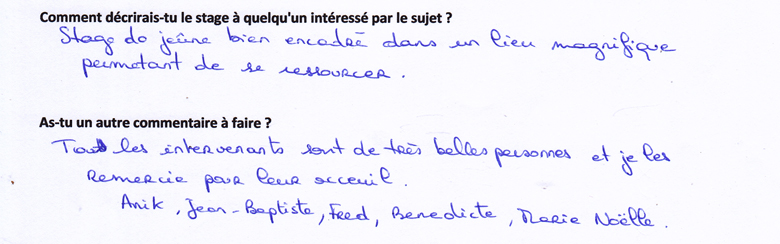 Comment décrirais-tu le stage à quelqu'un intéressé par le sujet ?
Stage de jeûne bien encadré dans un lieu magnifique
permetant de se ressourcer.
As-tu un autre commentaire à faire ?
Tout les intervenants sont de très belles personnes et je les
remercie pour leur acceuil.
Anik, Jean-Baptiste, Fred, Benedicte, Marie Noëlle.